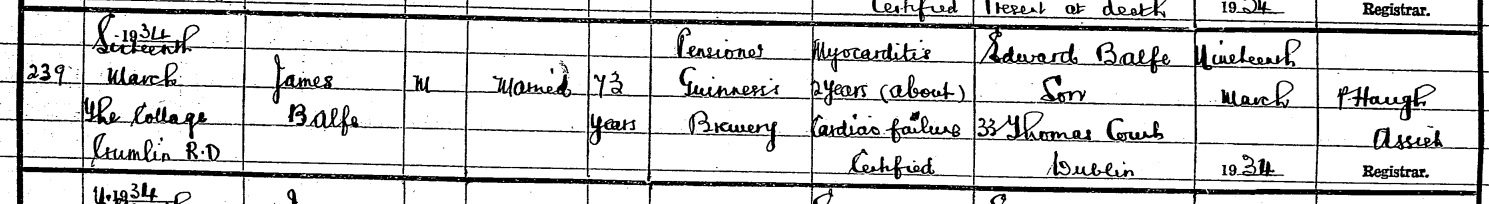 Certified Present at death 1934 Registrar.
239
1934
Sixteenth
March
The Cottage
Crumlin R.D
James
Balfe
M
Married
73
years
Pensioner
Guinness's
Brewery
Myocarditis
2 years (about)
Cardiac failure
Certified
Edward Balfe
Son
33 Thomas Court
Dublin
Nineteenth
March
1934
P Haugh
Assist
Registrar.
1934